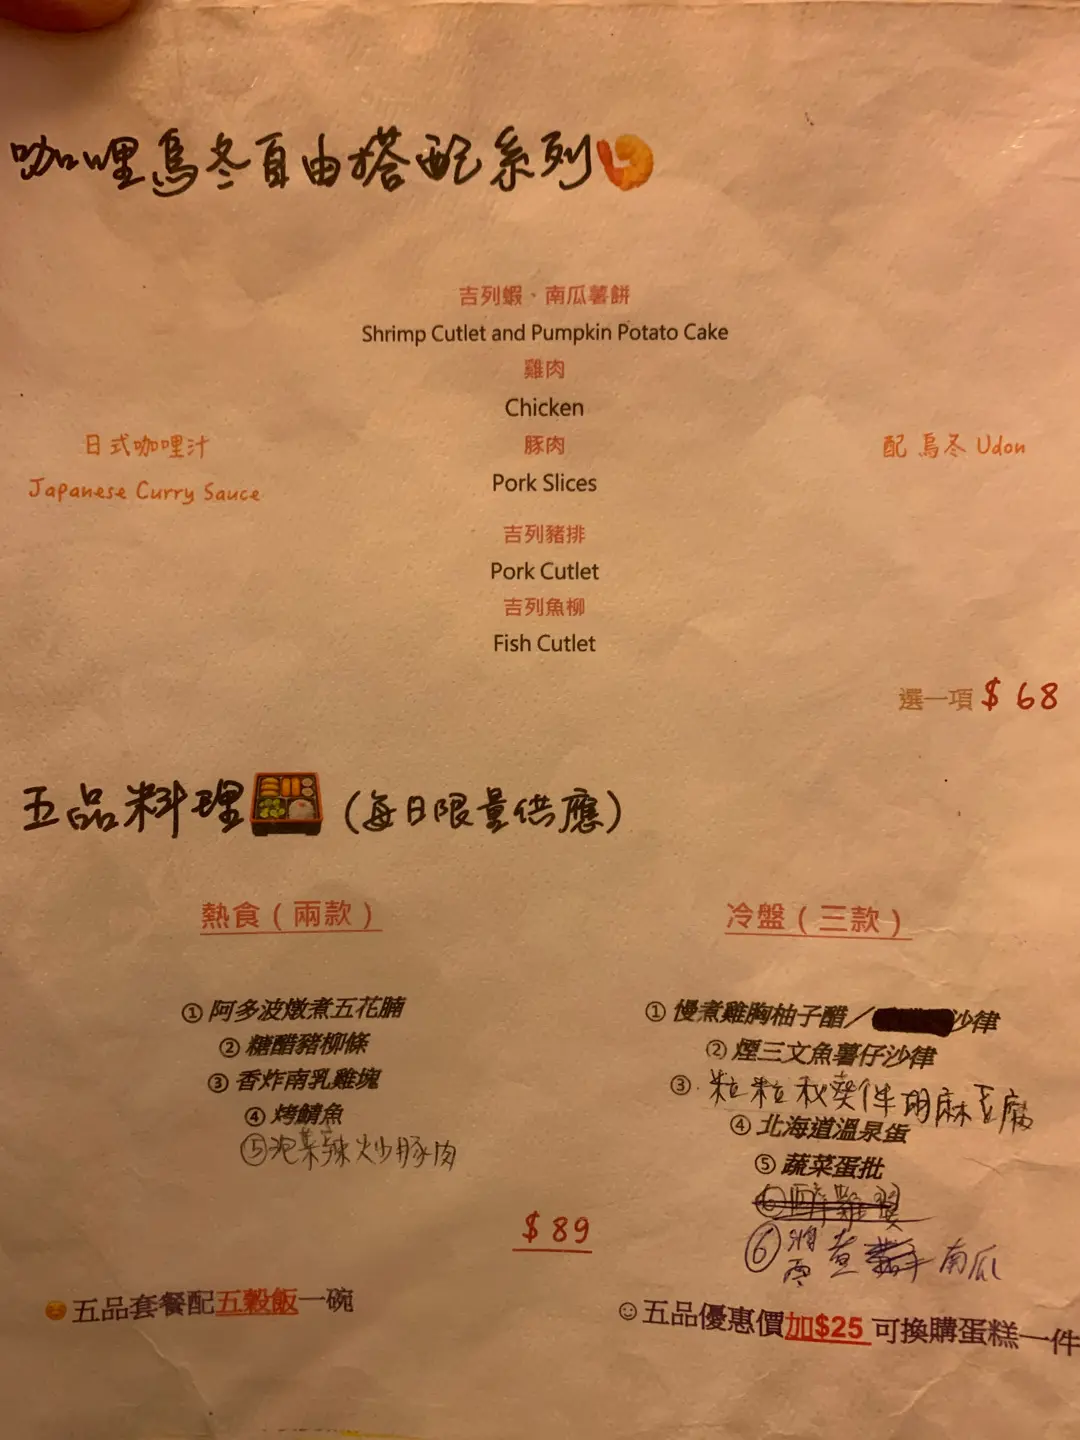 咖哩烏冬自由搭配系列
吉列蝦、南瓜薯餅
Shrimp Cutlet and Pumpkin Potato Cake
雞肉
Chicken
日式咖哩汁
Japanese Curry Sauce
豚肉
Pork Slices
配 烏冬 Udon
吉列豬排
Pork Cutlet
吉列魚柳
Fish Cutlet
選一項 $ 68
五品料理 (每日限量供應)
熱食（兩款）
① 阿多波燉煮五花腩
② 糖醋豬柳條
③ 香炸南乳雞塊
④ 烤鯖魚
⑤ 泡菜辣炒豚肉
冷盤（三款）
① 慢煮雞胸柚子醋／沙律
② 煙三文魚薯仔沙律
③ 粒粒秋葵伴胡麻豆腐
④ 北海道溫泉蛋
⑤ 蔬菜蛋批
⑥ 煮南瓜
$ 89
五品套餐配五穀飯一碗
五品優惠價加$25 可換購蛋糕一件